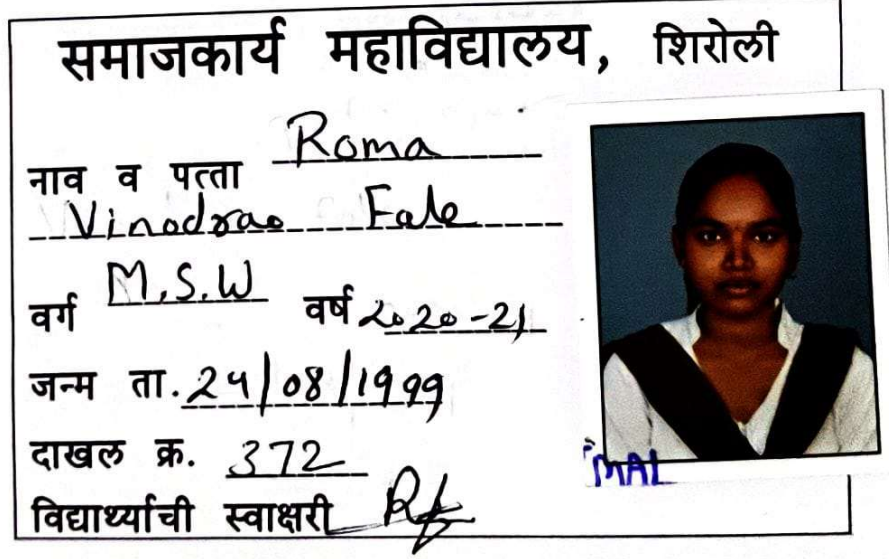 समाजकार्य महाविद्यालय, शिरोली
नाव व पत्ता Roma
Vinodrao Fale
वर्ग M.S.W वर्ष 2020-21
जन्म ता. 24/08/1999
दाखल क्र. 372
विद्यार्थ्याची स्वाक्षरी
MAL